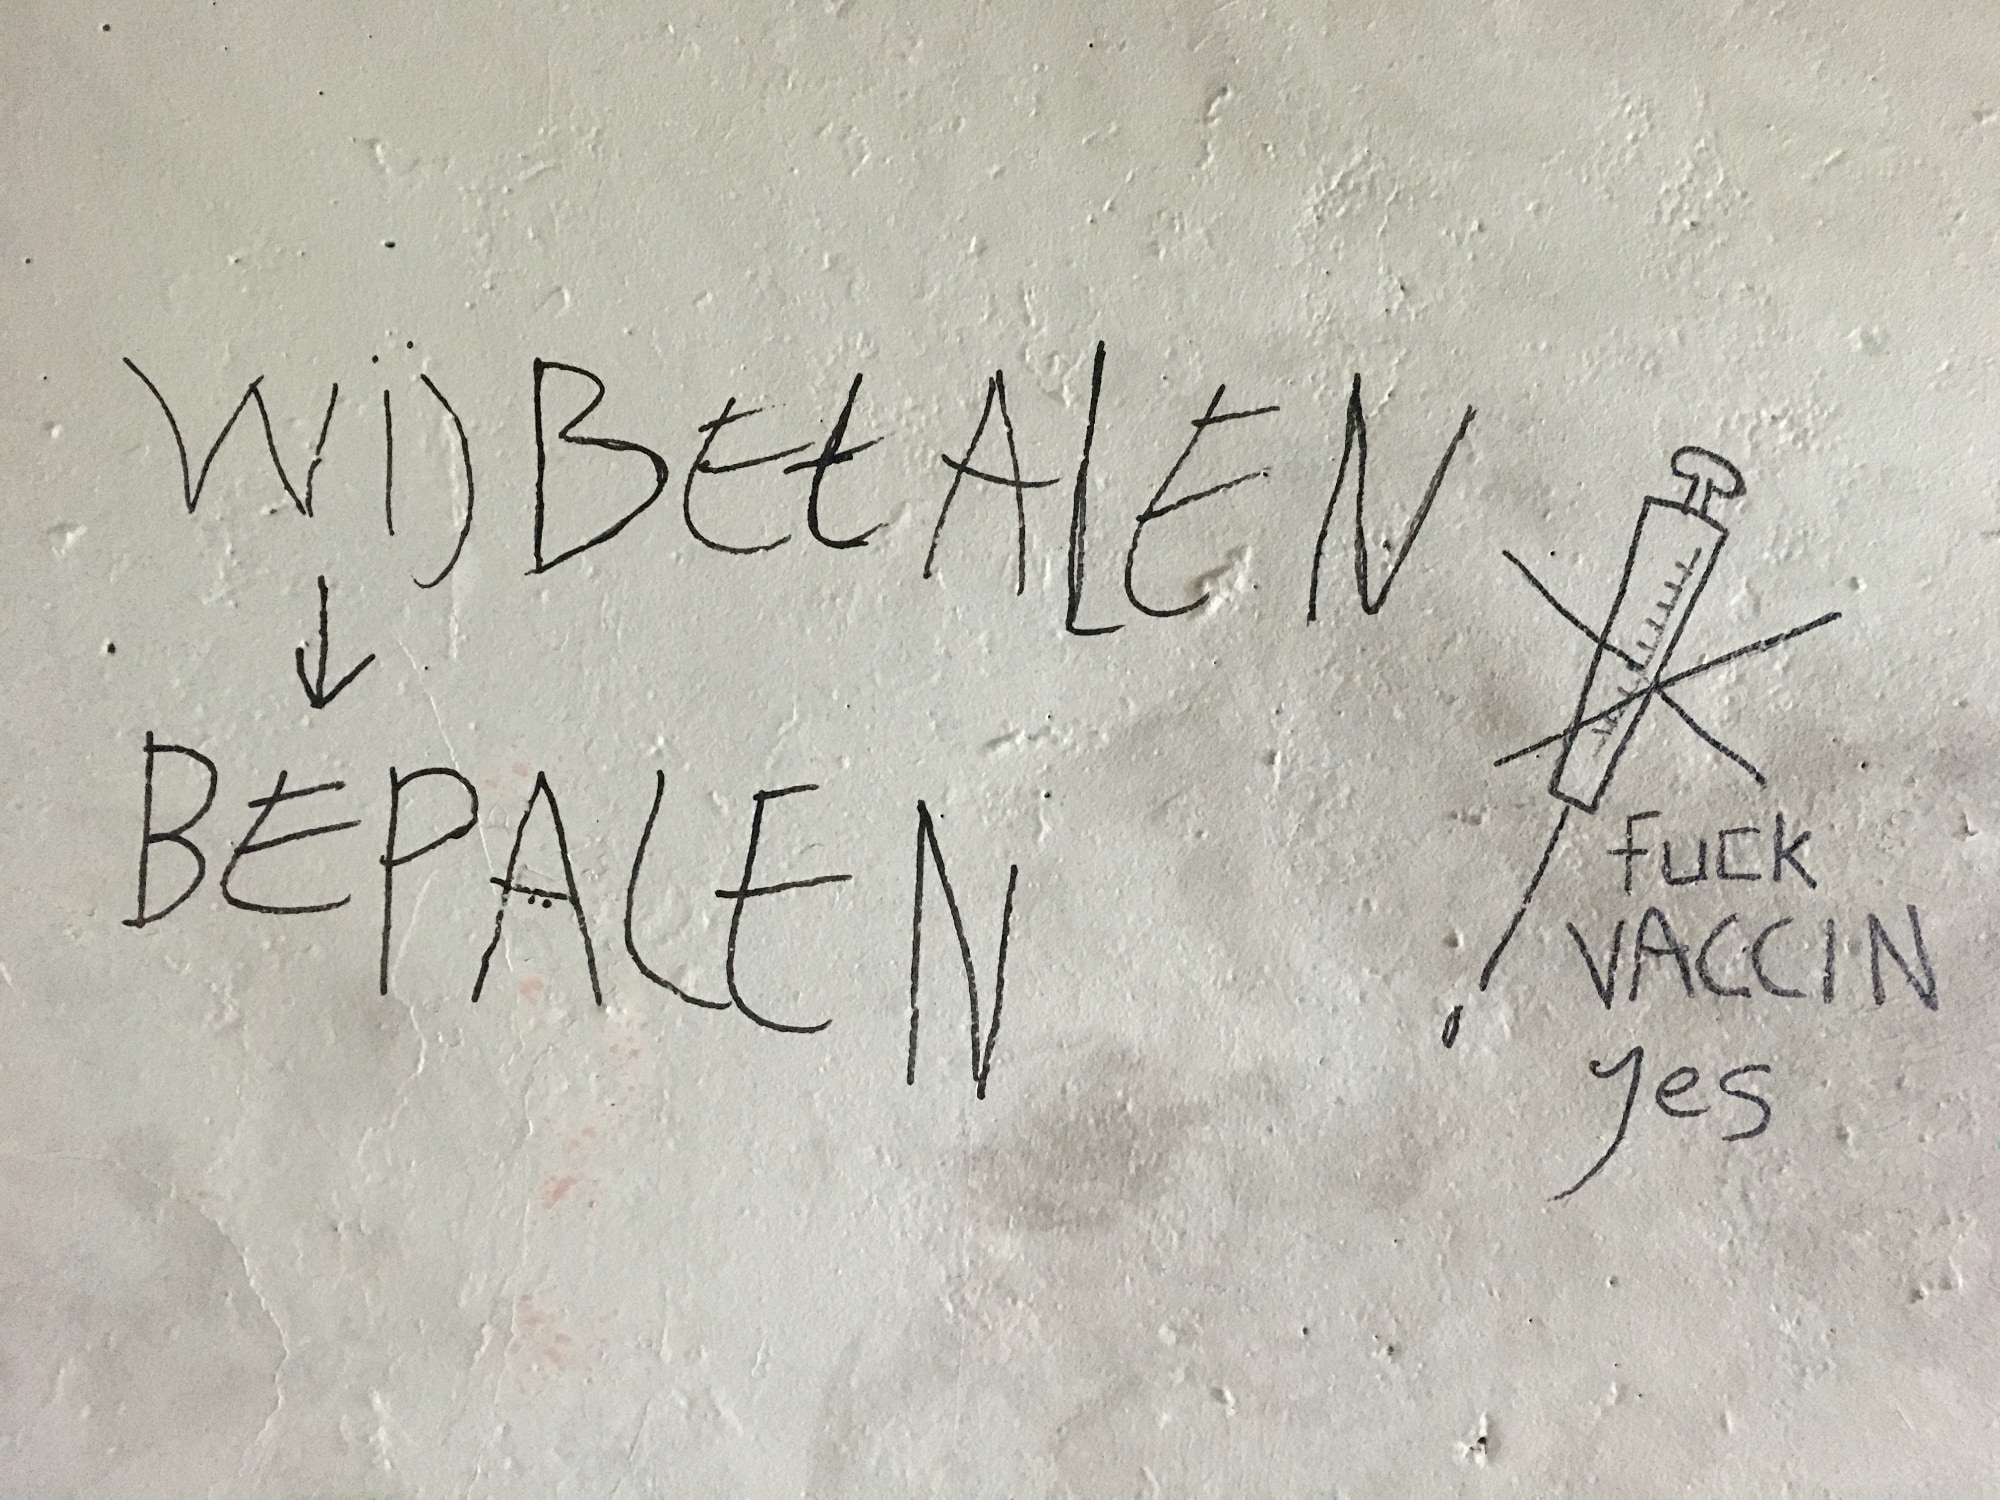 WIJ BEtALEN
BEPALEN
FUCK
VACCIN
yes